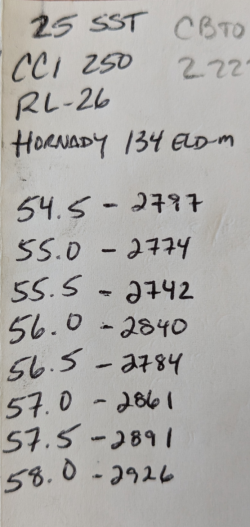 25 SST CBTO
CCI 250 2.22
RL-26
HORNADY 134 ELD-m
54.5 - 2797
55.0 - 2774
55.5 - 2742
56.0 - 2840
56.5 - 2784
57.0 - 2861
57.5 - 2891
58.0 - 2926